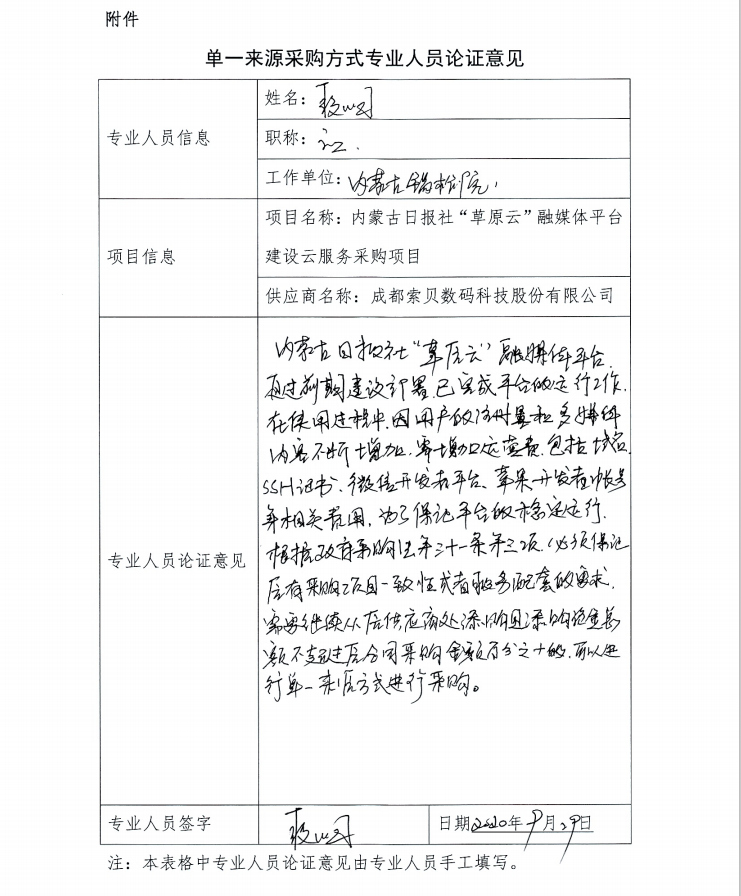 附件
单一来源采购方式专业人员论证意见
专业人员信息
姓名：
职称：
工作单位：内蒙古
项目信息
项目名称：内蒙古日报社“草原云”融媒体平台
建设云服务采购项目
供应商名称：成都索贝数码科技股份有限公司
专业人员论证意见
内蒙古日报社“草原云”融媒体平台，
通过前期建设部署，已完成平台的运行工作，
在使用过程中，因用户的注册量和多媒体
内容不断增加，需增加运营费，包括域名、
SSH证书、微信开发者平台、苹果开发者帐号
等相关费用，为了保证平台的稳定运行，
根据政府采购法第三十一条第三项，必须保证
原有采购项目一致性或者服务配套的要求，
需要继续从原供应商处添购且添购资金总
额不超过原合同采购金额百分之十的，可以进
行单一来源方式进行采购。
专业人员签字
日期2020年9月29日
注：本表格中专业人员论证意见由专业人员手工填写。